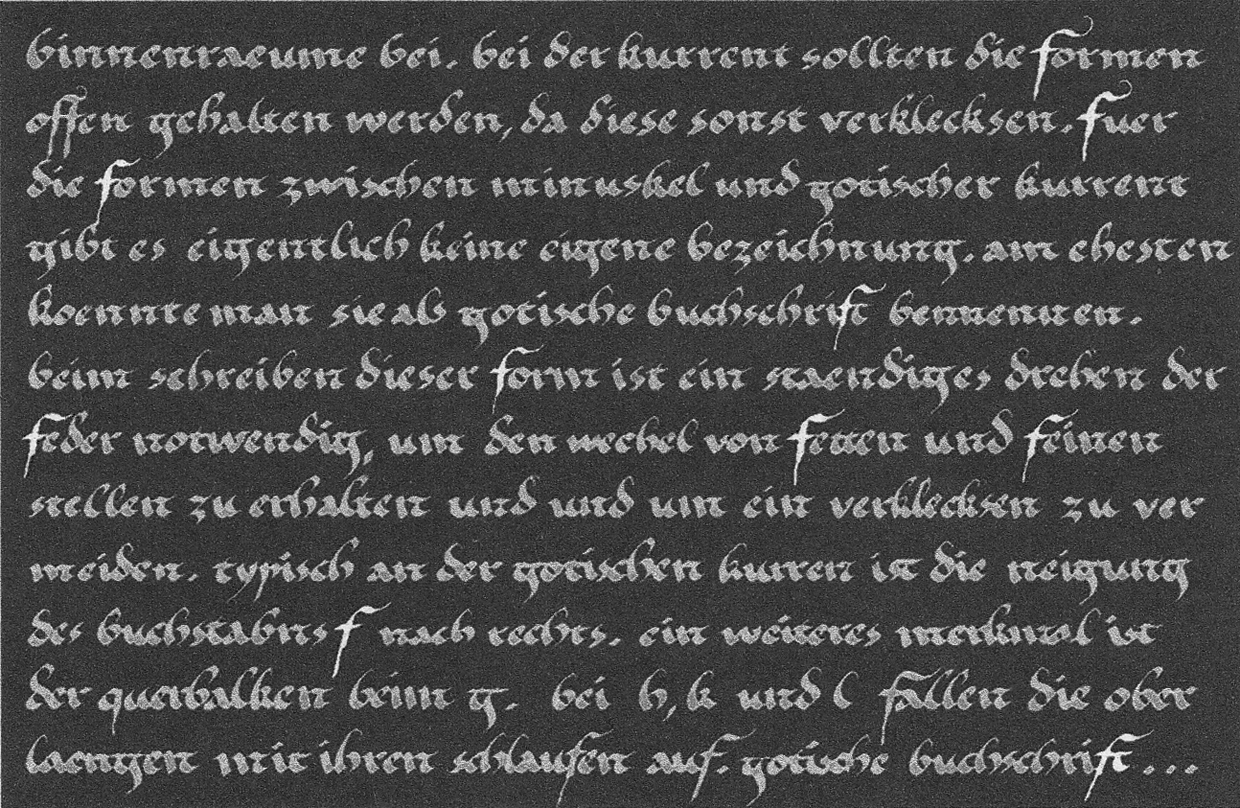 binnenraeume bei. bei der kurrent sollten die formen
offen gehalten werden, da diese sonst verklecksen. fuer
die formen zwischen minuskel und gotischer kurrent
gibt es eigentlich keine eigene bezeichnung. am ehesten
koennte man sie als gotische buchschrift bennennen.
beim schreiben dieser form ist ein staendiges drehen der
feder notwendig, um den wechel von fetten und feinen
stellen zu erhalten und und um ein verklecksen zu ver
meiden. typisch an der gotischen kurren ist die neigung
des buchstabns f nach rechts. ein weiteres merkmal ist
der querbalken beim g. bei h, k und l fallen die ober
laengen mit ihren schlaufen auf. gotische buchschrift...